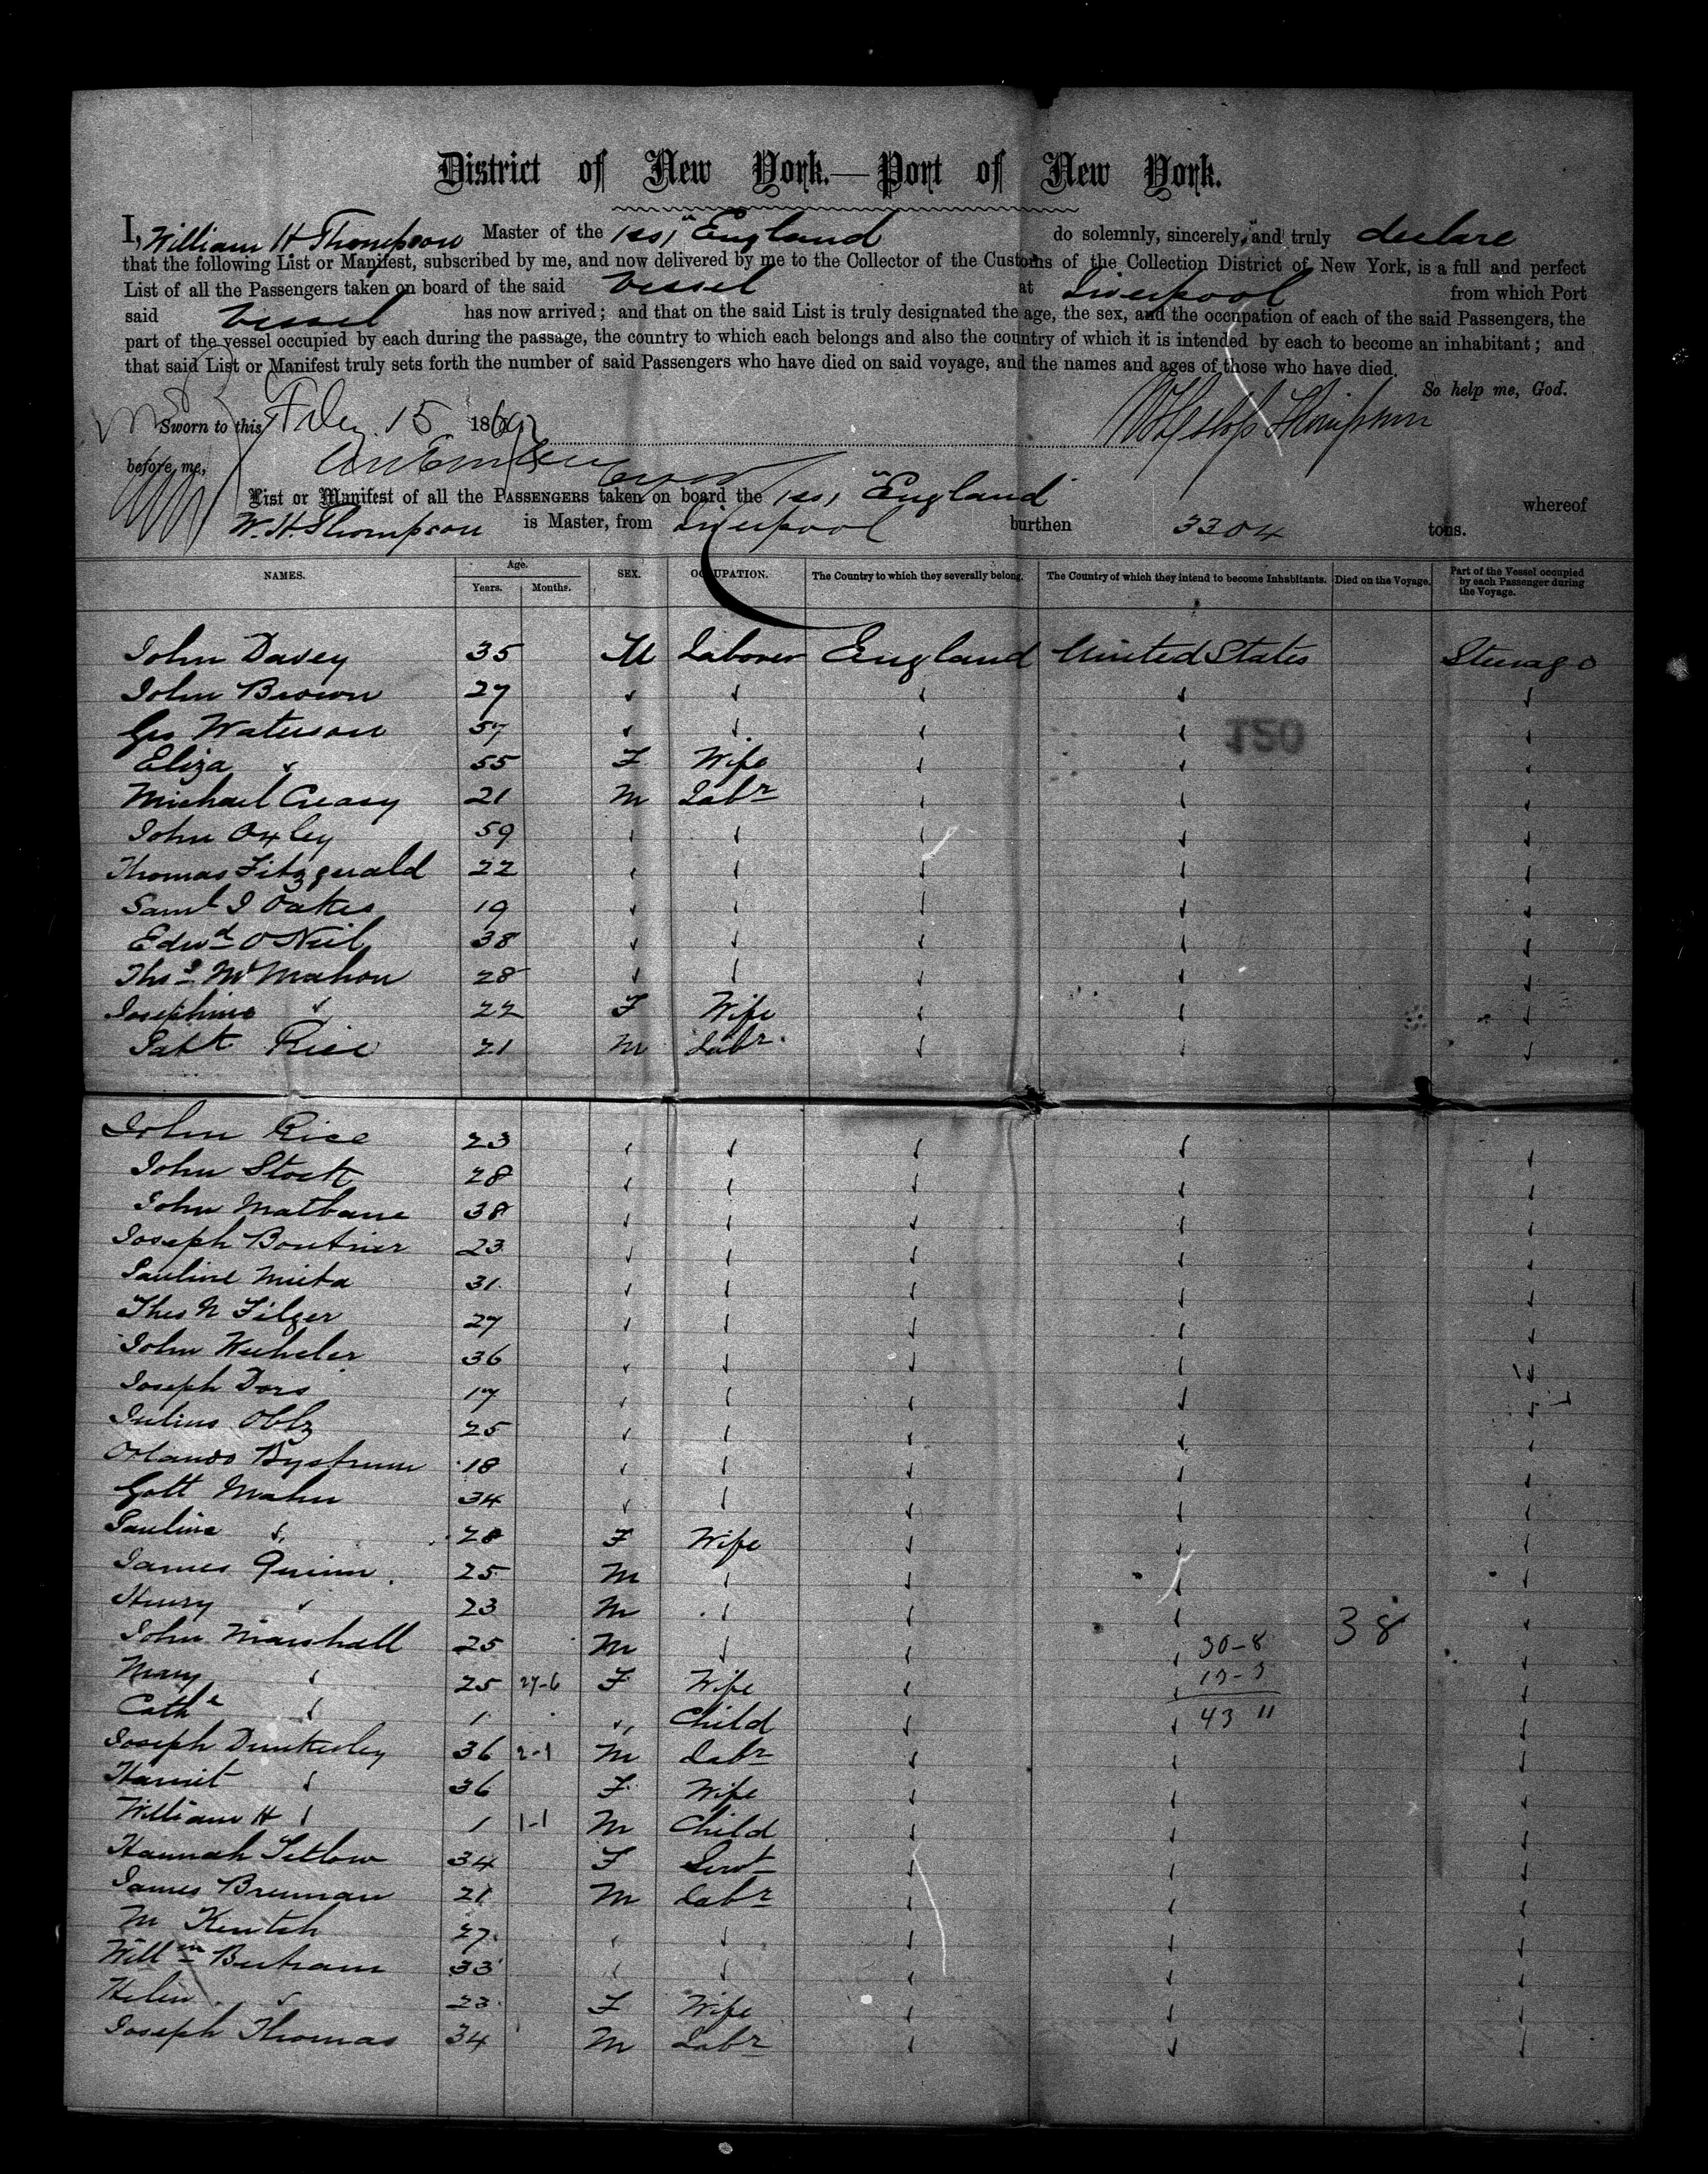 District of New York.—Port of New York.
I, William H Thompson Master of the (ss) "England do solemnly, sincerely, and truly declare
that the following List or Manifest, subscribed by me, and now delivered by me to the Collector of the Customs of the Collection District of New York, is a full and perfect
List of all the Passengers taken on board of the said Vessel at Liverpool from which Port
said Vessel has now arrived; and that on the said List is truly designated the age, the sex, and the occupation of each of the said Passengers, the
part of the vessel occupied by each during the passage, the country to which each belongs and also the country of which it is intended by each to become an inhabitant; and
that said List or Manifest truly sets forth the number of said Passengers who have died on said voyage, and the names and ages of those who have died.
So help me, God.
Sworn to this 15 186 Thompson
before me,
List or Manifest of all the PASSENGERS taken on board the (ss) "England" whereof
W. H. Thompson is Master, from Liverpool burthen 3304 tons.
NAMES. Age. Years. Months. SEX. OCCUPATION. The Country to which they severally belong. The Country of which they intend to become Inhabitants. Died on the Voyage. Part of the Vessel occupied by each Passenger during the Voyage.
John Davey 35 M Laborer England United States Steerage
John Brown 27 ✓ ✓ ✓ ✓ ✓
Geo Waterson 57 ✓ ✓ ✓ ✓ ✓
120
Eliza ✓ 55 F Wife ✓ ✓ ✓
Michael Creasy 21 M Labr ✓ ✓ ✓
John Oxley 59 ✓ ✓ ✓ ✓ ✓
Thomas Fitzgerald 22 ✓ ✓ ✓ ✓ ✓
Saml J Oakes 19 ✓ ✓ ✓ ✓ ✓
Edwd O Neil 38 ✓ ✓ ✓ ✓ ✓
Thos McMahon 28 ✓ ✓ ✓ ✓ ✓
Josephine ✓ 22 F Wife ✓ ✓ ✓
Patk Rice 21 M Labr. ✓ ✓ ✓
John Rice 23 ✓ ✓ ✓ ✓ ✓
John Stock 28 ✓ ✓ ✓ ✓ ✓
John 38 ✓ ✓ ✓ ✓ ✓
Joseph 23 ✓ ✓ ✓ ✓ ✓
Pauline 31 ✓ ✓ ✓ ✓ ✓
Thos N Filger 27 ✓ ✓ ✓ ✓ ✓
John 36 ✓ ✓ ✓ ✓ ✓
Joseph Dors 17 ✓ ✓ ✓ ✓ ✓
Julius 25 ✓ ✓ ✓ ✓ ✓
Orlando 18 ✓ ✓ ✓ ✓ ✓
Gott Mahn 34 ✓ ✓ ✓ ✓ ✓
Pauline ✓ 28 F Wife ✓ ✓ ✓
James Quinn 25 M ✓ ✓ ✓ ✓
Henry ✓ 23 M ✓ ✓ ✓ 38 ✓
John Marshall 25 M ✓ ✓ ✓ 30-8 ✓
Mary ✓ 25 F Wife ✓ ✓ 13-3 ✓
Cathe ✓ 1 ✓ Child ✓ ✓ 43 11 ✓
Joseph Dunkerley 36 M Labr ✓ ✓ ✓
Harriet ✓ 36 F Wife ✓ ✓ ✓
William H ✓ 1 1-1 M Child ✓ ✓ ✓
Hannah Tetlow 34 F Servt ✓ ✓ ✓
James Brennan 21 M Labr ✓ ✓ ✓
M 27 ✓ ✓ ✓ ✓ ✓
Willm Bertram 33 ✓ ✓ ✓ ✓ ✓
Helen ✓ 23 F Wife ✓ ✓ ✓
Joseph Thomas 34 M Labr ✓ ✓ ✓